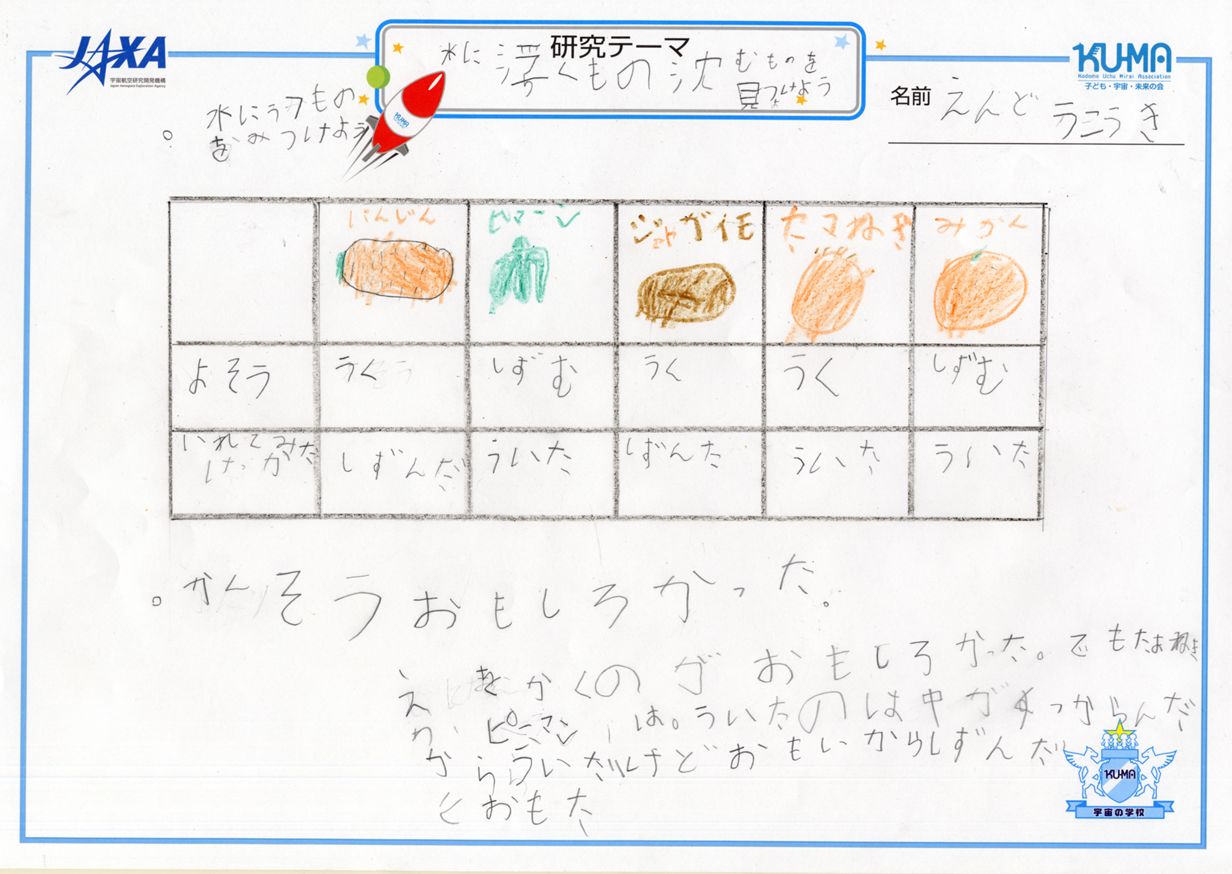 JAXA
宇宙航空研究開発機構
Japan Aerospace Exploration Agency
研究テーマ
水に浮くもの沈むものを
見つけよう
KUMA
Kodomo Uchu Mirai Association
子ども・宇宙・未来の会
名前 えんど
水にうくもの
をみつけよう
KUMA
にんじん ピマーン ジャガイモ タマねぎ みかん
よそう うく しずむ うく うく しずむ
いれてみた
けっか しずんだ ういた しずんた ういた ういた
かんそうおもしろかった。
えをかくのがおもしろかった。でもたまねぎ
ピーマンは。ういたのは中がすっからんだ
からういだけどおもいからしずんだ
とおもた
KUMA
宇宙の学校